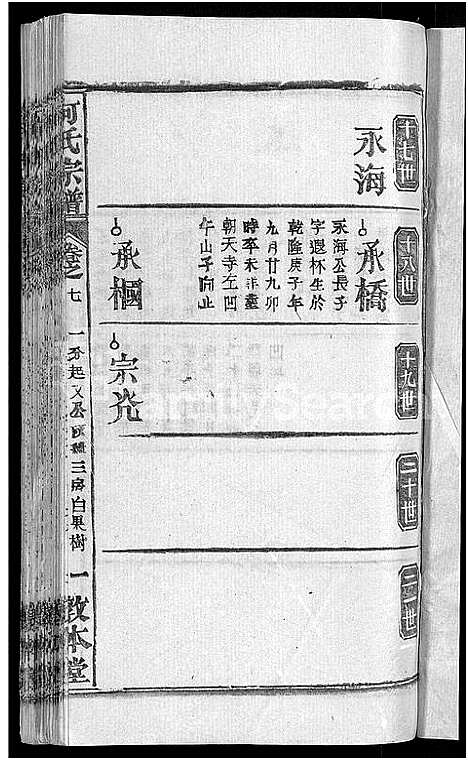 十七世
永海
十八世
承橋
永海公長子
字遐杯生於
乾隆庚子年
九月廿九卯
時卒未詳塟
朝天寺左凹
午山子向止
承楓
十九世
宗光
二十世
二一世
何氏宗譜
卷之七
一 分起文公 三房白果樹
一
敦本堂
FamilySearch